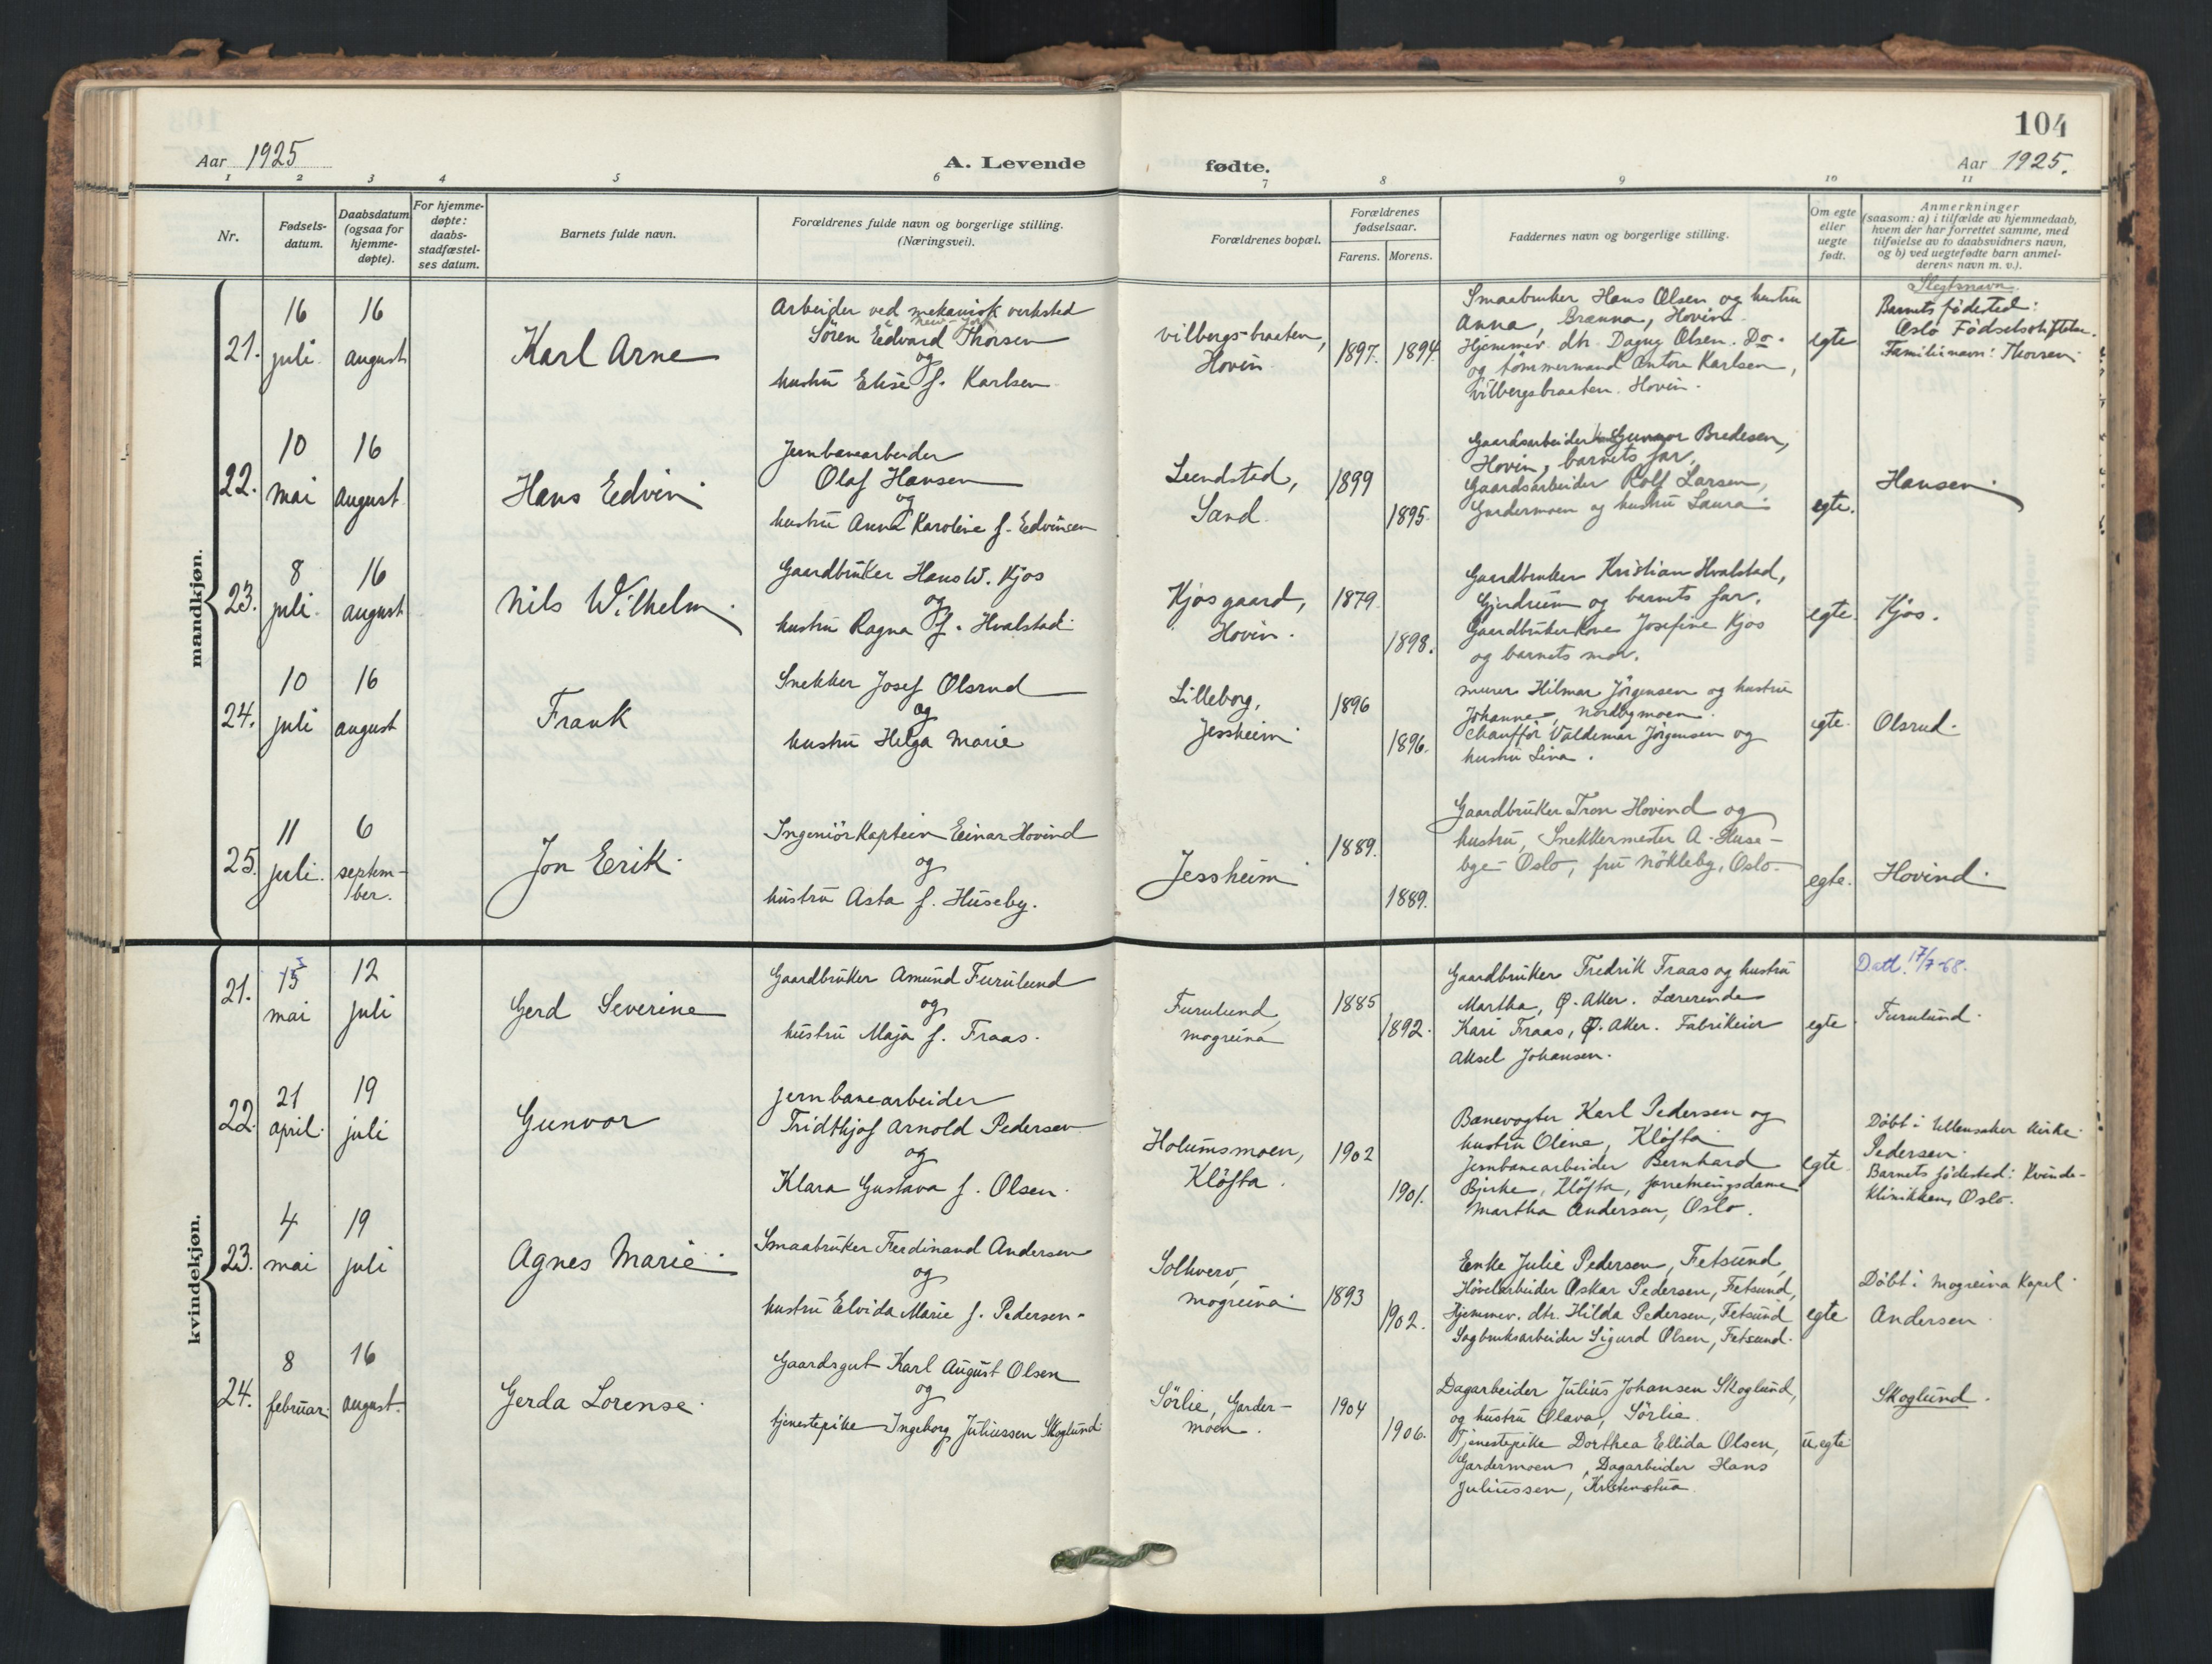 104
Aar 1925
A. Levende
fødte.
Aar 1925.
1 2 3 4 5 6 7 8 9 10 11
Nr.
Fødsels-
datum.
Daabsdatum
(ogsaa for
hjemme-
døpte).
For hjemme-
døpte:
daabs-
stadfæstel-
ses datum.
Barnets fulde navn.
Forældrenes fulde navn og borgerlige stilling.
(Næringsvei).
Forældrenes bopæl.
Forældrenes
fødselsaar.
Farens. Morens.
Faddernes navn og borgerlige stilling.
Om egte
eller
uegte
født.
Anmerkninger
(saasom: a) i tilfælde av hjemmedaab,
hvem der har forrettet samme, med
tilføielse av to daabsvidners navn,
og b) ved uegtefødte barn anmel-
derens navn m. v.).
mandkjøn.
21.
16
juli
16
august
Karl Arne
Arbeider ved mekanisk verksted
i New-York
Sören Edvard Thorsen
og
hustru Elise f. Karlsen
Vilbergs-braaten,
Hovin
1897.
1894
Smaabruker Hans Olsen og hustru
Anna, Brænna, Hovin
Hjemmev. dtr. Dagny Olsen. Do.
og tömmermand Anton Karlsen,
Vilbergsbraaten. Hovin.
egte
Slegtsnavn.
Barnets födested:
Oslo Fødselsstiftelse.
Familienavn: Thorsen
22.
10
mai
16
august
Hans Edvin
Jernbanearbeider
Olaf Hansen
og
hustru Anna Karoline f. Edvinsen
Lundstad,
Sand.
1899
1895.
Gaardsarbeider Gunnar Bredesen,
Hovin, barnets far,
Gaardsarbeider Rolf Larsen,
Gardermoen og hustru Laura.
egte.
Hansen
23.
8
juli
16
august
Nils Wilhelm
Gaardbruker Hans W. Kjos
og
hustru Ragna f. Hvalstad
Kjos gaard,
Hovin.
1879
1898.
Gaardbruker Kristian Hvalstad,
Gjerdrum og barnets far.
Gaardbrukerkone Josefine Kjos
og barnets mor.
egte.
Kjos.
24.
10
juli
16
august
Frank
Snekker Josef Olsrud
og
hustru Helga Marie
Lilleborg,
Jessheim
1896
1896.
Murer Hilmar Jörgensen og hustru
Johanne, Nordbymoen.
Chauffør Valdemar Jörgensen og
hustru Lina.
egte.
Olsrud.
25.
11
juli.
6
septem-
ber.
Jon Erik.
Ingeniörkaptein Einar Hovind
og
hustru Asta f. Huseby.
Jessheim
1889.
1889.
Gaardbruker Tron Hovind og
hustru, Snekkermester A. Huse-
bye Oslo, fru Nökleby, Oslo.
egte.
Hovind.
kvindekjøn.
21.
15
mai
12
juli
Gerd Severine
Gaardbruker Amund Furulund
og
hustru Maja f. Fraas.
Furulund,
Mogreina
1885
1892.
Gaardbruker Fredrik Fraas og hustru
Martha, Ø. Aker. Lærerinde
Kari Fraas, Ø. Aker. Fabrikeier
Aksel Johansen.
egte.
Datt. 17/7-68.
Furulund.
22.
21
april.
19
juli
Gunvor
Jernbanearbeider
Fridthjof Arnold Pedersen
og
Klara Gustava f. Olsen.
Holumsmoen,
Klöfta.
1902
1901.
Banevogter Karl Pedersen og
hustru Oline, Klöfta
Jernbanearbeider Bernhard
Bjerke, Klöfta, forretningsdame
Martha Andersen, Oslo.
egte
Döbt i Ullensaker kirke.
Pedersen.
Barnets födested: Kvinde-
klinikken, Oslo.
23.
4
mai
19
juli
Agnes Marie
Smaabruker Ferdinand Andersen
og
hustru Elvida Marie f. Pedersen.
Solhverv,
Mogreina
1893
1902.
Enke Julie Pedersen, Fetsund,
Høvelarbeider Oskar Pedersen, Fetsund,
Hjemmev. dtr. Hilda Pedersen, Fetsund
Sagbruksarbeider Sigurd Olsen, Fetsund.
egte
Döbt i Mogreina Kapel.
Andersen.
24.
8
februar
16
august.
Gerda Lorense.
Gaardsgut Karl August Olsen
og
tjenestepike Ingeborg Juliussen Skoglund
Sörlie, Garder-
moen.
1904
1906.
Dagarbeider Julius Johansen Skoglund,
og hustru Olava, Sörlie.
Tjenestepike Dorthea Ellida Olsen,
Gardermoen, Dagarbeider Hans
Juliussen,
uegte
Skoglund.